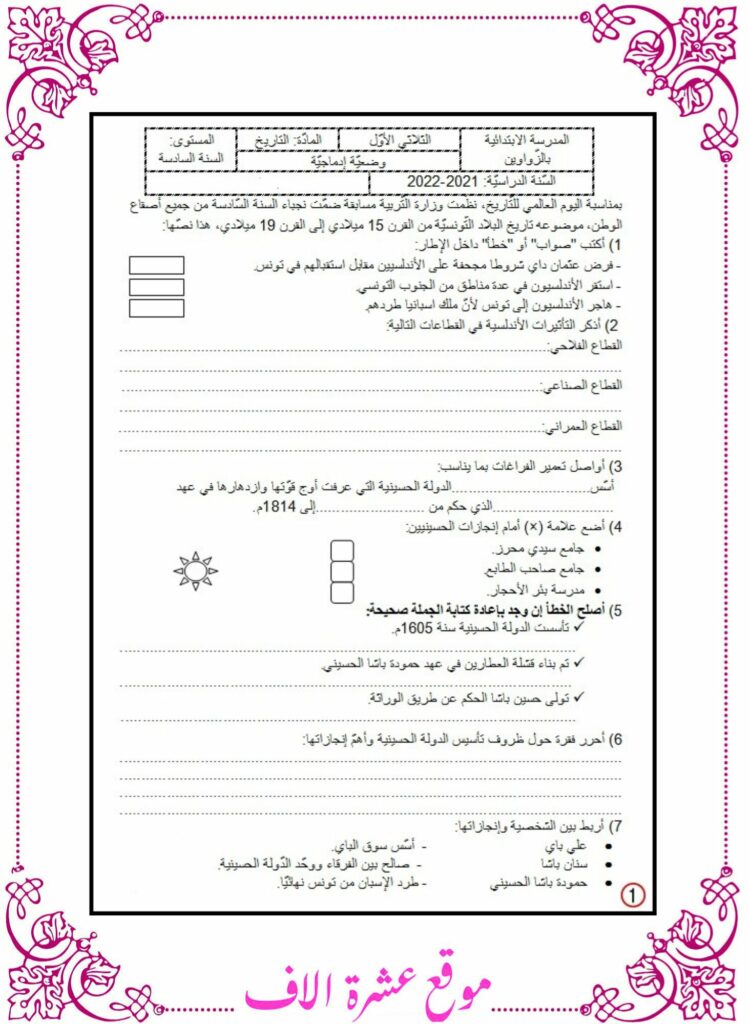 المدرسة الابتدائية بالزّواوين
الثلاثي الأوّل
المادّة: التاريخ
المستوى: السنة السادسة
وضعيّة إدماجيّة
السّنة الدراسيّة: 2021-2022
بمناسبة اليوم العالمي للتّاريخ، نظّمت وزارة التّربية مسابقة ضمّت نجباء السنة السّادسة من جميع أصقاع
الوطن، موضوعه تاريخ البلاد التّونسيّة من القرن 15 ميلادي إلى القرن 19 ميلادي، هذا نصّها:
1) أكتب "صواب" أو "خطأ" داخل الإطار:
- فرض عثمان داي شروطا مجحفة على الأندلسيين مقابل استقبالهم في تونس.
- استقر الأندلسيون في عدة مناطق من الجنوب التونسي.
- هاجر الأندلسيون إلى تونس لأنّ ملك اسبانيا طردهم.
2) أذكر التأثيرات الأندلسية في القطاعات التالية:
القطاع الفلاحي:
القطاع الصناعي:
القطاع العمراني:
3) أواصل تعمير الفراغات بما يناسب:
أسّس..............................الدولة الحسينية التي عرفت أوج قوّتها وازدهارها في عهد
..............................الذي حكم من ..............................إلى 1814م.
4) أضع علامة (×) أمام إنجازات الحسينيين:
• جامع سيدي محرز.
• جامع صاحب الطابع.
• مدرسة بئر الأحجار.
5) أصلح الخطأ إن وجد بإعادة كتابة الجملة صحيحة:
✓ تأسست الدولة الحسينية سنة 1605م.
✓ تم بناء قشلة العطارين في عهد حمودة باشا الحسيني.
✓ تولى حسين باشا الحكم عن طريق الوراثة.
6) أحرر فقرة حول ظروف تأسيس الدولة الحسينية وأهمّ إنجازاتها:
7) أربط بين الشخصية وإنجازاتها:
• علي باي - أسّس سوق الباي.
• سنان باشا - صالح بين الفرقاء ووحّد الدّولة الحسينية.
• حمودة باشا الحسيني - طرد الإسبان من تونس نهائيّا.
1
موقع عشرة الاف